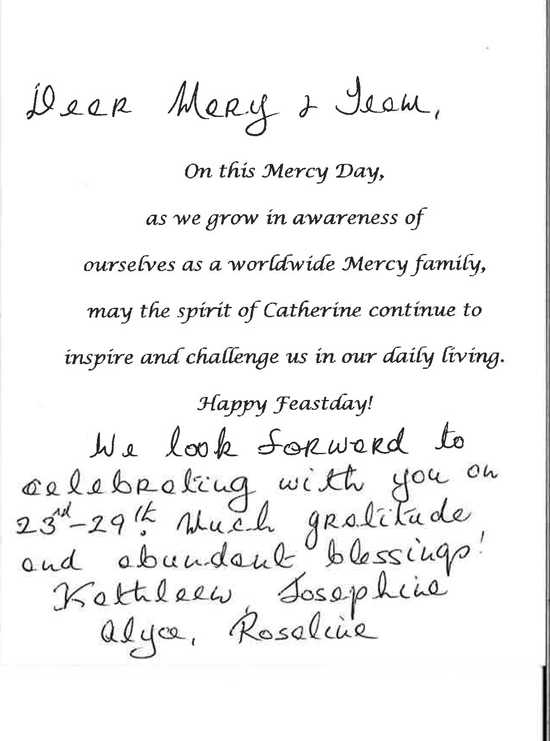 Dear Mary & Team,
On this Mercy Day,
as we grow in awareness of
ourselves as a worldwide Mercy family,
may the spirit of Catherine continue to
inspire and challenge us in our daily living.
Happy Feastday!
We look forward to
celebrating with you on
23rd-29th. Much gratitude
and abundant blessings!
Kathleen, Josephine
Alyce, Rosaline